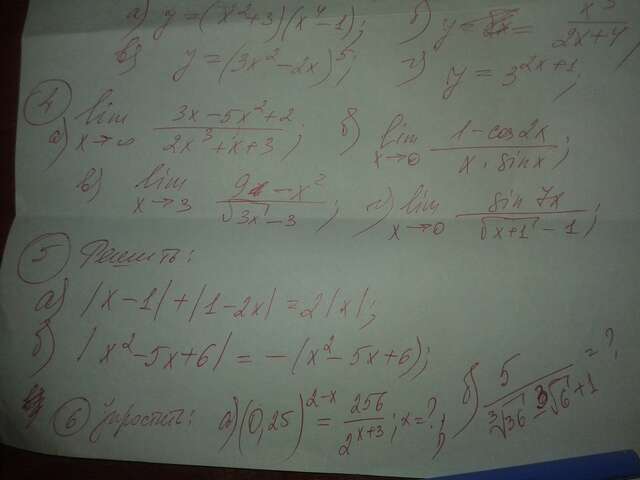 а) y=(x²+3)(x⁴-1); б) y = x³/(2x+4);
в) y=(3x²-2x)⁵; г) y=3^(2x+1);
4
а) lim x→∞ (3x-5x²+2)/(2x³+x+3); б) lim x→0 (1-cos2x)/(x·sinx);
в) lim x→3 (9-x²)/(√(3x)-3); г) lim x→0 (sin 7x)/(√(x+1)-1);
5 Решить:
а) |x-1|+|1-2x|=2|x|;
б) |x²-5x+6|=-(x²-5x+6);
6 Упростить: а) (0,25)^(2-x) = 256/2^(x+3); x=?; б) 5/(∛36-∛6+1) =?